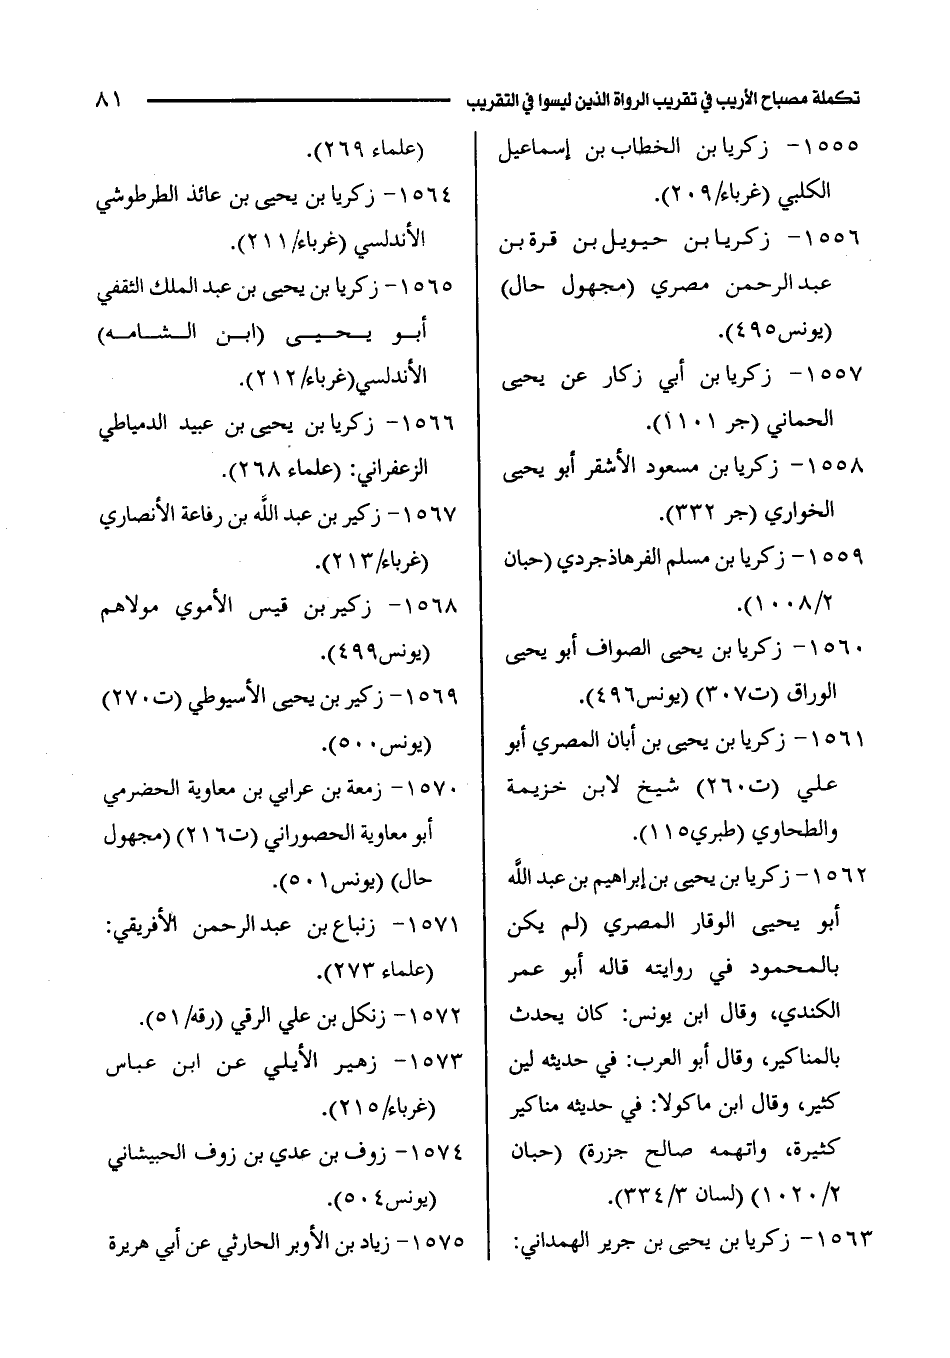 تكملة مصباح الأريب في تقريب الرواة الذين ليسوا في التقريب ٨١
١٥٥٥- زكريا بن الخطاب بن إسماعيل
الكلبي (غرباء/٢٠٩).
١٥٥٦- زكريا بن حيويل بن قرة بن
عبد الرحمن مصري (مجهول حال)
(يونس٤٩٥).
١٥٥٧- زكريا بن أبي زكار عن يحيى
الحماني (جر ١١٠١).
١٥٥٨- زكريا بن مسعود الأشقر أبو يحيى
الخواري (جر ٣٣٢).
١٥٥٩- زكريا بن مسلم الفرهاذجردي (حبان
١٠٠٨/٢).
١٥٦٠- زكريا بن يحيى الصواف أبو يحيى
الوراق (ت٣٠٧) (يونس٤٩٦).
١٥٦١- زكريا بن يحيى بن أبان المصري أبو
علي (ت٢٦٠) شيخ لابن خزيمة
والطحاوي (طبري١١٥).
١٥٦٢- زكريا بن يحيى بن إبراهيم بن عبد اللَّه
أبو يحيى الوقار المصري (لم يكن
بالمحمود في روايته قاله أبو عمر
الكندي، وقال ابن يونس: كان يحدث
بالمناكير، وقال أبو العرب: في حديثه لين
كثير، وقال ابن ماكولا: في حديثه مناكير
كثيرة، واتهمه صالح جزرة) (حبان
١٠٢٠/٢) (لسان ٣٣٤/٣).
١٥٦٣- زكريا بن يحيى بن جرير الهمداني:
(علماء ٢٦٩).
١٥٦٤- زكريا بن يحيى بن عائذ الطرطوشي
الأندلسي (غرباء/٢١١).
١٥٦٥- زكريا بن يحيى بن عبد الملك الثقفي
أبو يحيى (ابن الشامه)
الأندلسي(غرباء/٢١٢).
١٥٦٦- زكريا بن يحيى بن عبيد الدمياطي
الزعفراني: (علماء ٢٦٨).
١٥٦٧- زكير بن عبد اللَّه بن رفاعة الأنصاري
(غرباء/٢١٣).
١٥٦٨- زكير بن قيس الأموي مولاهم
(يونس٤٩٩).
١٥٦٩- زكير بن يحيى الأسيوطي (ت٢٧٠)
(يونس٥٠٠).
١٥٧٠- زمعة بن عرابي بن معاوية الحضرمي
أبو معاوية الحصوراني (ت٢١٦) (مجهول
حال) (يونس٥٠١).
١٥٧١- زنباع بن عبد الرحمن الأفريقي:
(علماء ٢٧٣).
١٥٧٢- زنكل بن علي الرقي (رقه/٥١).
١٥٧٣- زهير الأيلي عن ابن عباس
(غرباء/٢١٥).
١٥٧٤- زوف بن عدي بن زوف الحبيشاني
(يونس٥٠٤).
١٥٧٥- زياد بن الأوبر الحارثي عن أبي هريرة